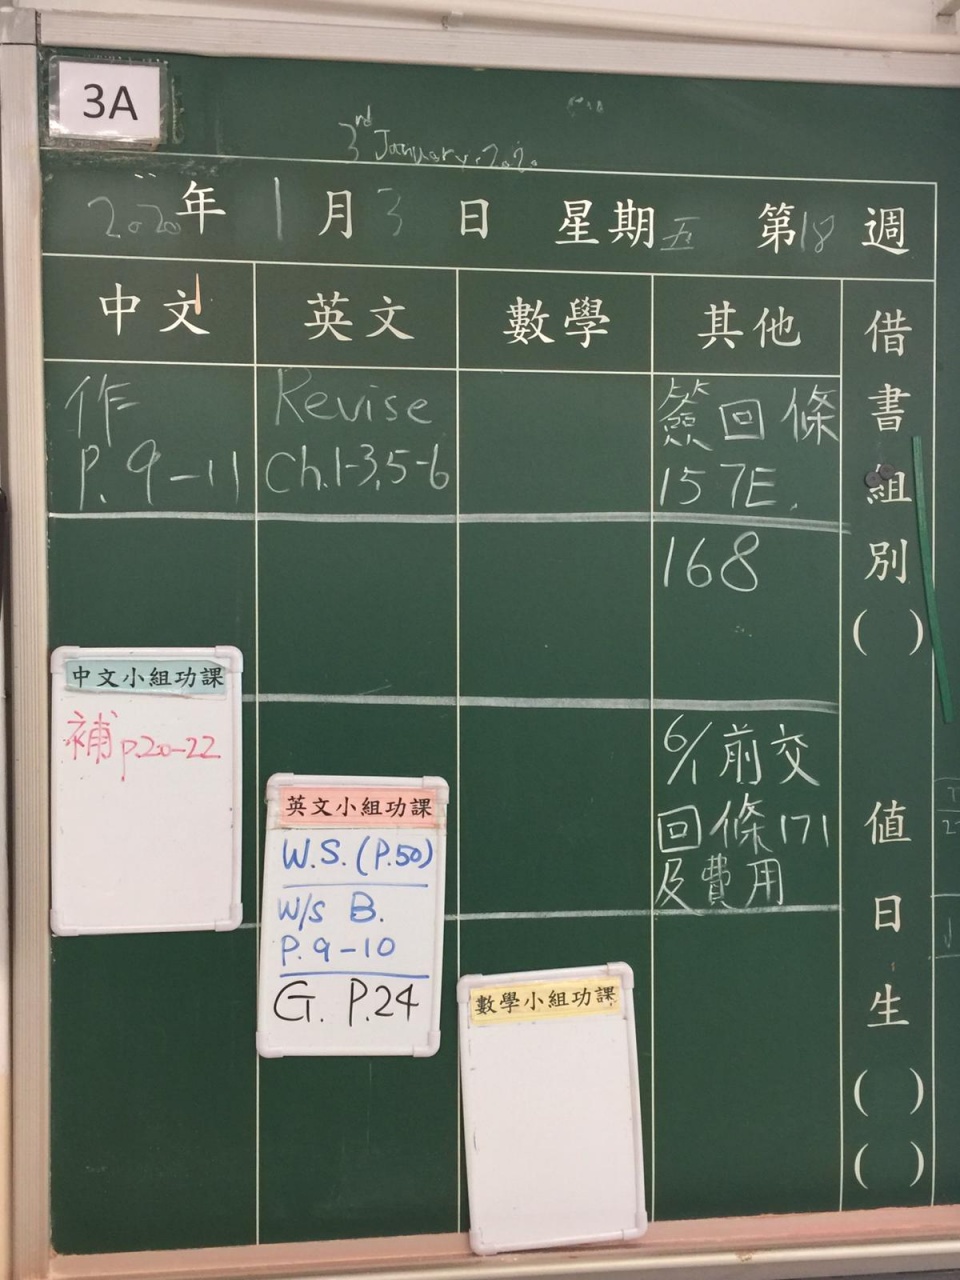 3A
3rd January, 2020
2020年 1月3日 星期五 第18週
中文 英文 數學 其他
作
P. 9-11
Revise
Ch.1-3,5-6
簽回條
157E.
168
6/1前交
回條171
及費用
借書組別( )
值日生( )( )
中文小組功課
補p.20-22
英文小組功課
W.S. (P.50)
W/S B.
P.9-10
G. P.24
數學小組功課